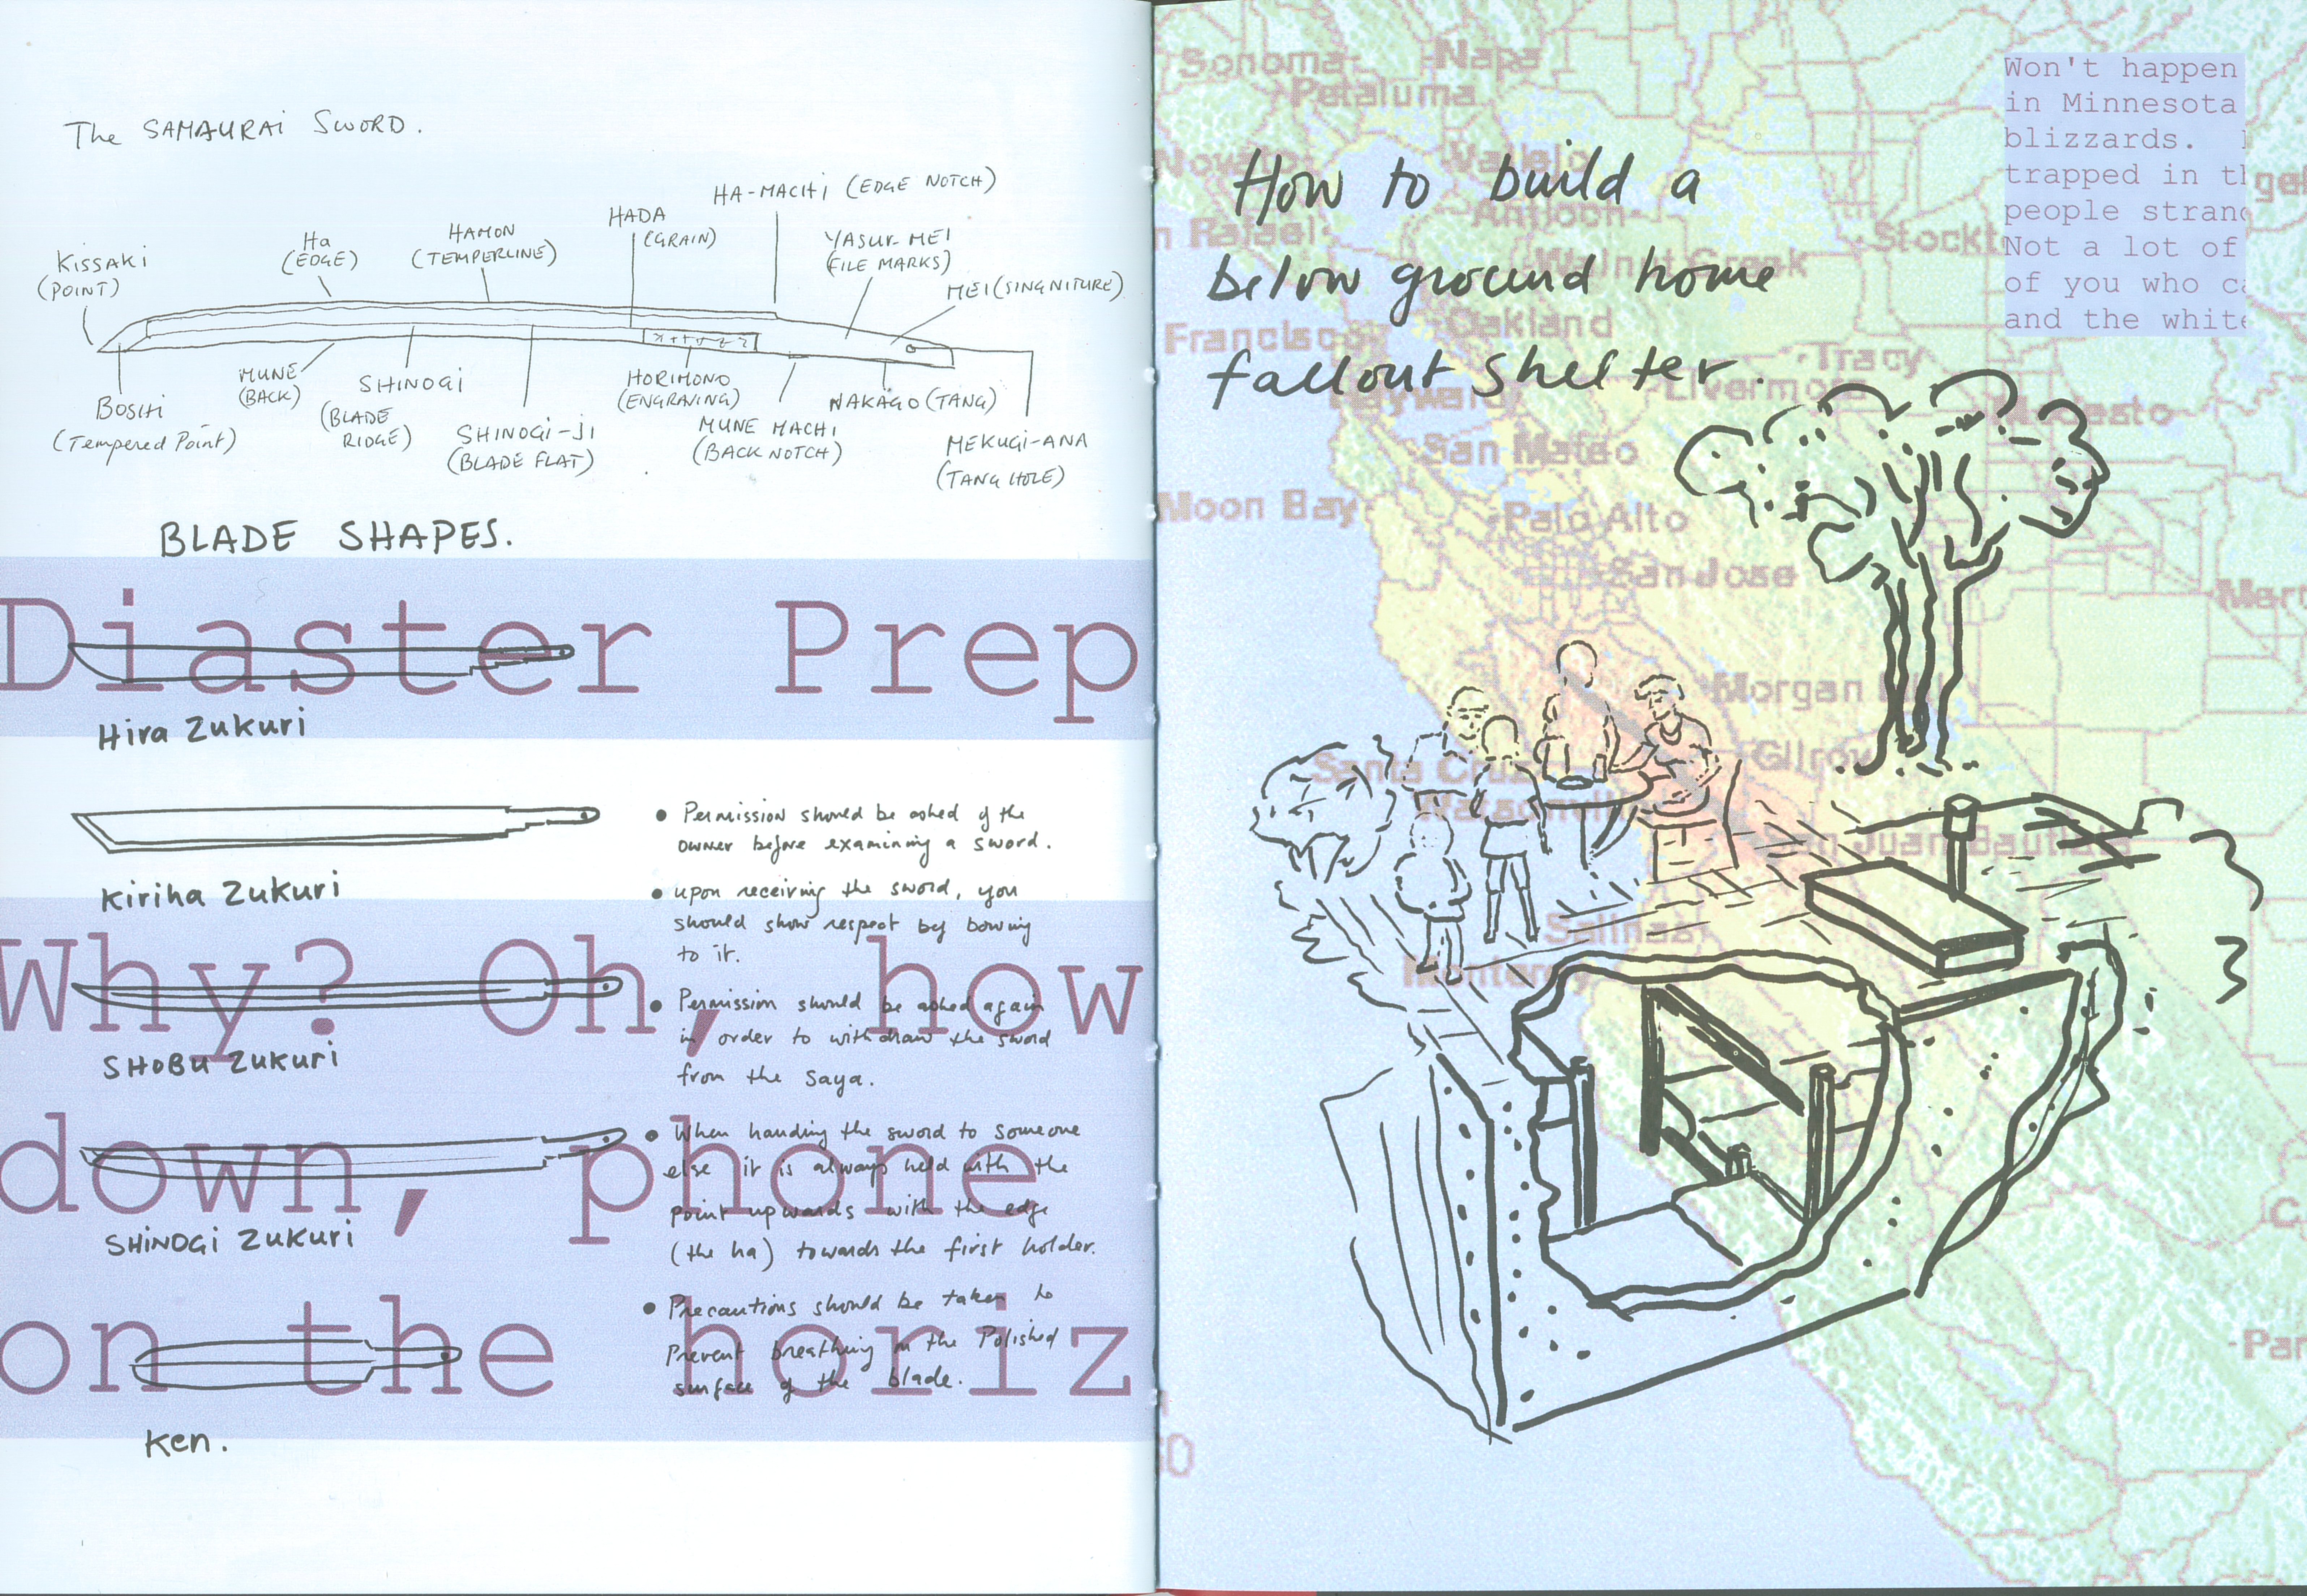 The SAMAURAI SWORD.
HA-MACHI (EDGE NOTCH)
HADA
(GRAIN)
HAMON
(TEMPERLINE)
Ha
(EDGE)
YASUR-MEI
(FILE MARKS)
KISSAKI
(POINT)
MEI (SINGNITURE)
MUNE
(BACK)
SHINOGI
(BLADE
RIDGE)
HORIMONO
(ENGRAVING)
NAKAGO (TANG)
BOSHI
(Tempered Point)
SHINOGI-JI
(BLADE FLAT)
MUNE MACHI
(BACK NOTCH)
MEKUGI-ANA
(TANG HOLE)
BLADE SHAPES.
Diaster Prep
Hira Zukuri
Kiriha Zukuri
Why? Oh, how
SHOBU Zukuri
down, phone
SHINOGI Zukuri
on the horiz
Ken.
• Permission should be asked of the
owner before examining a sword.
• upon receiving the sword, you
should show respect by bowing
to it.
• Permission should be asked again
in order to withdraw the sword
from the saya.
• When handing the sword to someone
else it is always held with the
point upwards with the edge
(the ha) towards the first holder.
• Precautions should be taken to
Prevent breathing on the Polished
surface of the blade.
Won't happen
in Minnesota
blizzards.
trapped in th
people stran
Not a lot of
of you who ca
and the white
How to build a
below ground home
fallout shelter.
Sonoma
Napa
Petaluma
Novato
Vallejo
n Rafael
Antioch
Stockt
Walnut Creek
Francisco
Oakland
Tracy
Livermo
Hayward
Modesto
San Mateo
Moon Bay
Palo Alto
San Jose
Merc
Morgan
Gilroy
Santa Cruz
Watsonville
San Juan Bautista
Salinas
Monterey